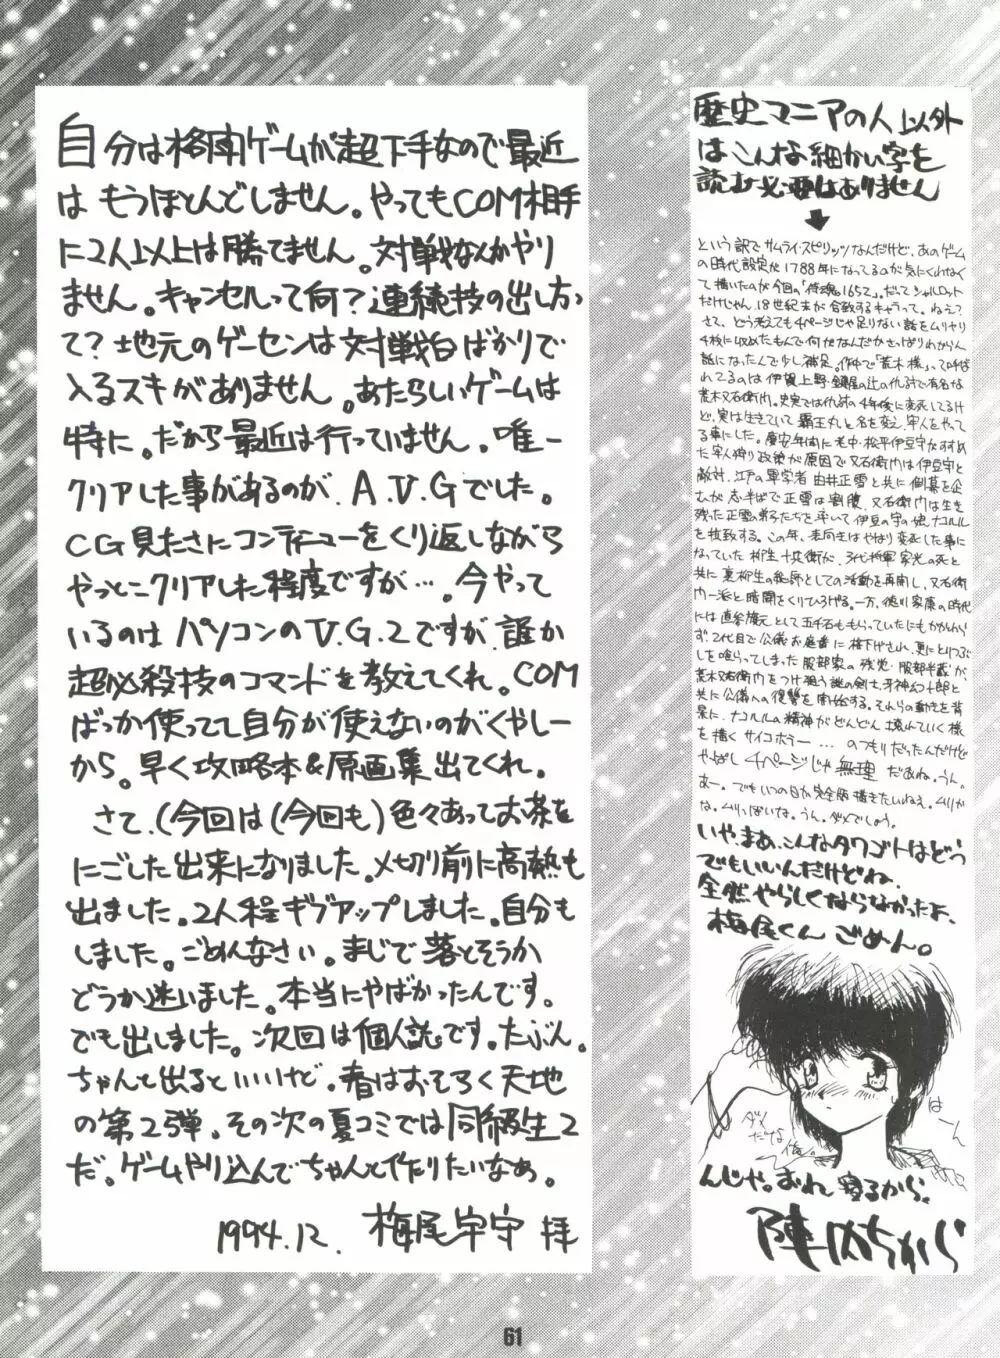 自分は格闘ゲームが超下手なので最近
は もうほとんどしません。やってもCOM相手
に2人以上は勝てません。対戦なんかやり
ません。キャンセルって何？連続技の出し方っ
て？地元のゲーセンは対戦台ばかりで
入るスキがありません。あたらしいゲームは
特に。だから最近は行っていません。唯一
クリアした事があるのが、A.V.Gでした。
CG見たさにコンティニューをくり返しながら
やっとこクリアした程度ですが…。今やって
いるのは パソコンのV.G.2ですが、誰か
超必殺技のコマンドを教えてくれ。COM
ばっか使ってて自分が使えないのがくやしー
から。早く攻略本&原画集出てくれ。
さて、(今回は(今回も)色々あってお茶を
にごした出来になりました。〆切り前に高熱も
出ました。2人程ギブアップしました。自分も
しました。ごめんなさい。まじで落とそうか
どうか迷いました。本当にやばかったんです。
でも出しました。次回は個人誌です。たぶん。
ちゃんと出るといいけど。春はおそらく天地
の第2弾。その次の夏コミでは同級生2
だ。ゲームやり込んでちゃんと作りたいなぁ。
1994.12. 梅尾宇守 拝
歴史マニアの人以外
はこんな細かい字を
読む必要はありません
という訳でサムライ・スピリッツなんだけど、あのゲーム
の時代設定が1788年になってるのが気にくわなく
て描いたのが今回の「侍魂1652」。だってシャルロット
だけじゃん、18世紀末が合致するキャラって。ねえ？
さて、どう考えても4ページじゃ足りない話をムリヤリ
4枚に収めたもんで何せなんだかさっぱりわからん
話になったんで少し補足。作中で「荒木様」って呼ば
れてるのは伊賀上野・鍵屋の辻の仇討で有名な
荒木又右衛門。史実では仇討の4年後に変死してるけ
ど、実は生きていて覇王丸と名を変え、牢人をやって
る事にした。慶安年間に老中・松平伊豆守がすすめ
た牢人狩り政策が原因で又右衛門は伊豆守と
敵対、江戸の軍学者 由井正雪と共に倒幕を企
むが志半ばで正雪は割腹、又右衛門は生き
残った正雪の弟子たちを率いて伊豆の守の娘、ナコルル
を拉致する。この年、表向きはやはり変死した事に
なっていた柳生十兵衛が、3代将軍家光の死と
共に裏柳生の総帥としての活動を再開し、又右衛
門一派と暗闘をくりひろげる。一方、徳川家康の時代
には直参旗元として五千石ももらっていたにもかかわら
ず、2代目で公儀お庭番に格下げされ、更にとりつぶ
しを喰らってしまった服部家の残党・服部半蔵が、
荒木又右衛門をつけ狙う謎の剣士、牙神幻十郎と
共に公儀への復讐を開始する。それらの動きを背
景に、ナコルルの精神がどんどん壊れていく様
を描くサイコホラー…のつもりだったんだけど
やっぱし4ページじゃ無理だぁね。うん。
あー。でもいつの日か完全版描きたいねえ。ムリか
な。ムリっぽいな。うん。ダメでしょう。
いや、まあ、こんなタワゴトはどう
でもいいんだけどね、
全然やらしくならなかったよ、
梅尾くん ごめん。
ダメ
だな
俺。
はーん
んじゃ。おれ 寝るから。
61